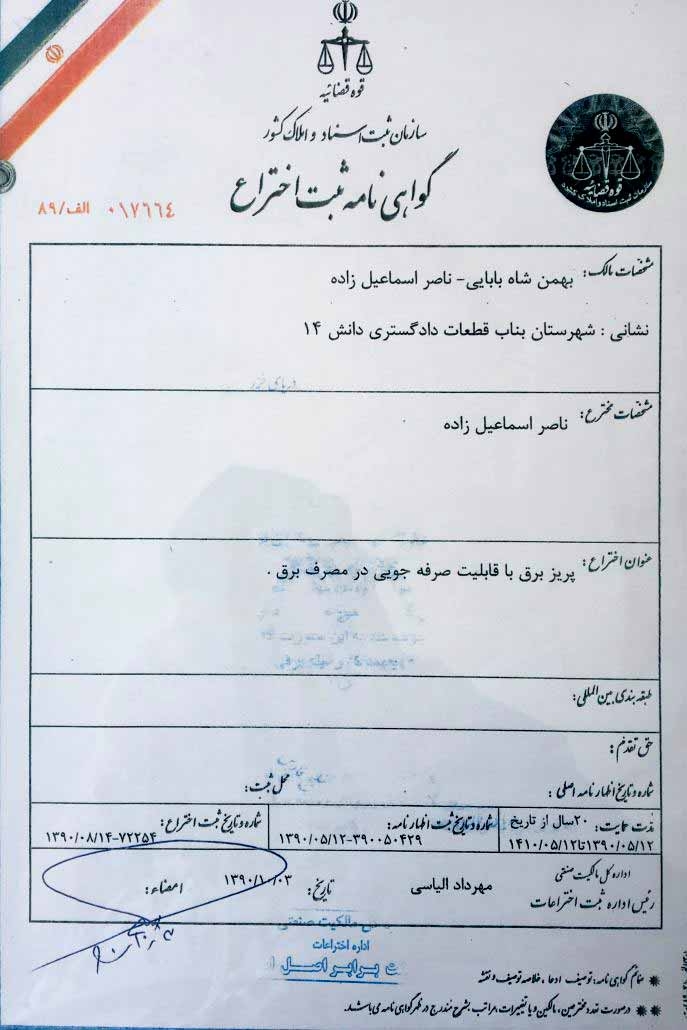 قوه قضائیه
سازمان ثبت اسناد و املاک کشور
گواهی نامه ثبت اختراع
قوه قضائیه
سازمان ثبت اسناد و املاک کشور
الف/۸۹ ۰۱۷۶۶۴
مشخصات مالک: بهمن شاه بابایی- ناصر اسماعیل زاده
نشانی : شهرستان بناب قطعات دادگستری دانش ۱۴
مشخصات مخترع: ناصر اسماعیل زاده
عنوان اختراع: پریز برق با قابلیت صرفه جویی در مصرف برق .
طبقه بندی بین المللی:
حق تقدم:
شماره و تاریخ اظهارنامه اصلی : محل ثبت:
مدت حمایت: ۲۰سال از تاریخ
۱۳۹۰/۰۵/۱۲تا۱۴۱۰/۰۵/۱۲
شماره و تاریخ ثبت اظهارنامه:
۳۹۰۰۵۰۴۲۹-۱۳۹۰/۰۵/۱۲
شماره و تاریخ ثبت اختراع:
۷۲۲۵۴-۱۳۹۰/۰۸/۱۴
اداره کل مالکیت صنعتی
رئیس اداره ثبت اختراعات
مهرداد الیاسی
تاریخ: ۱۳۹۰/۱۰/۰۳
امضاء:
مالکیت صنعتی
اداره اختراعات
برابر اصل
ضمائم گواهی نامه: توصیف ادعا، خلاصه توصیف و نقشه
درصورت تعدد مخترعین، مالکین و یا تغییرات، مراتب بشرح مندرج در ظهر گواهی نامه می باشد.